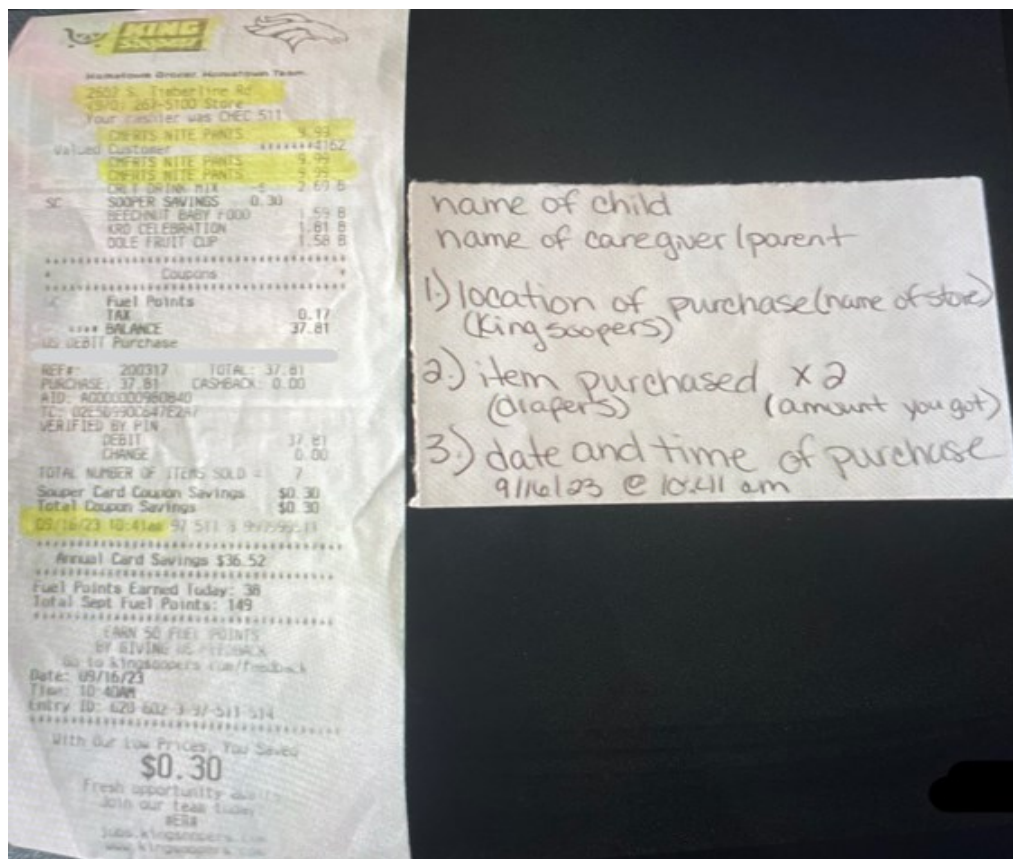 KING
Soopers
Hometown Grocer, Hometown Team
2602 S. Timberline Rd
(970) 267-5100 Store
Your cashier was CHEC 511
CMFRTS NITE PANTS 9.99
Valued Customer *******4162
CMFRTS NITE PANTS 9.99
CMFRTS NITE PANTS 9.99
DRINK MIX 2.69 B
SC SOOPER SAVINGS 0.30
BEECHNUT BABY FOOD 1.59 B
KRO CELEBRATION 1.81 B
DOLE FRUIT CUP 1.58 B
Coupons
Fuel Points
TAX 0.17
**** BALANCE 37.81
US DEBIT Purchase
REF#: 200317 TOTAL: 37.81
PURCHASE: 37.81 CASHBACK: 0.00
AID: A0000000980840
TC:
VERIFIED BY PIN
DEBIT 37.81
CHANGE 0.00
TOTAL NUMBER OF ITEMS SOLD = 7
Sooper Card Coupon Savings $0.30
Total Coupon Savings $0.30
09/16/23 10:41am 97 511
Annual Card Savings $36.52
Fuel Points Earned Today: 38
Total Sept Fuel Points: 149
EARN 50 FUEL POINTS
BY GIVING US FEEDBACK
Go to kingsoopers.com/feedback
Date: 09/16/23
Time: 10:40AM
Entry ID:
With Our Low Prices, You Saved
$0.30
Fresh opportunity
Join our team today
jobs.kingsoopers.com
www.kingsoopers.com
name of child
name of caregiver/parent
1.) location of purchase (name of store)
(King soopers)
2.) item purchased x2
(diapers) (amount you got)
3.) date and time of purchase
9/16/23 @ 10:41 am